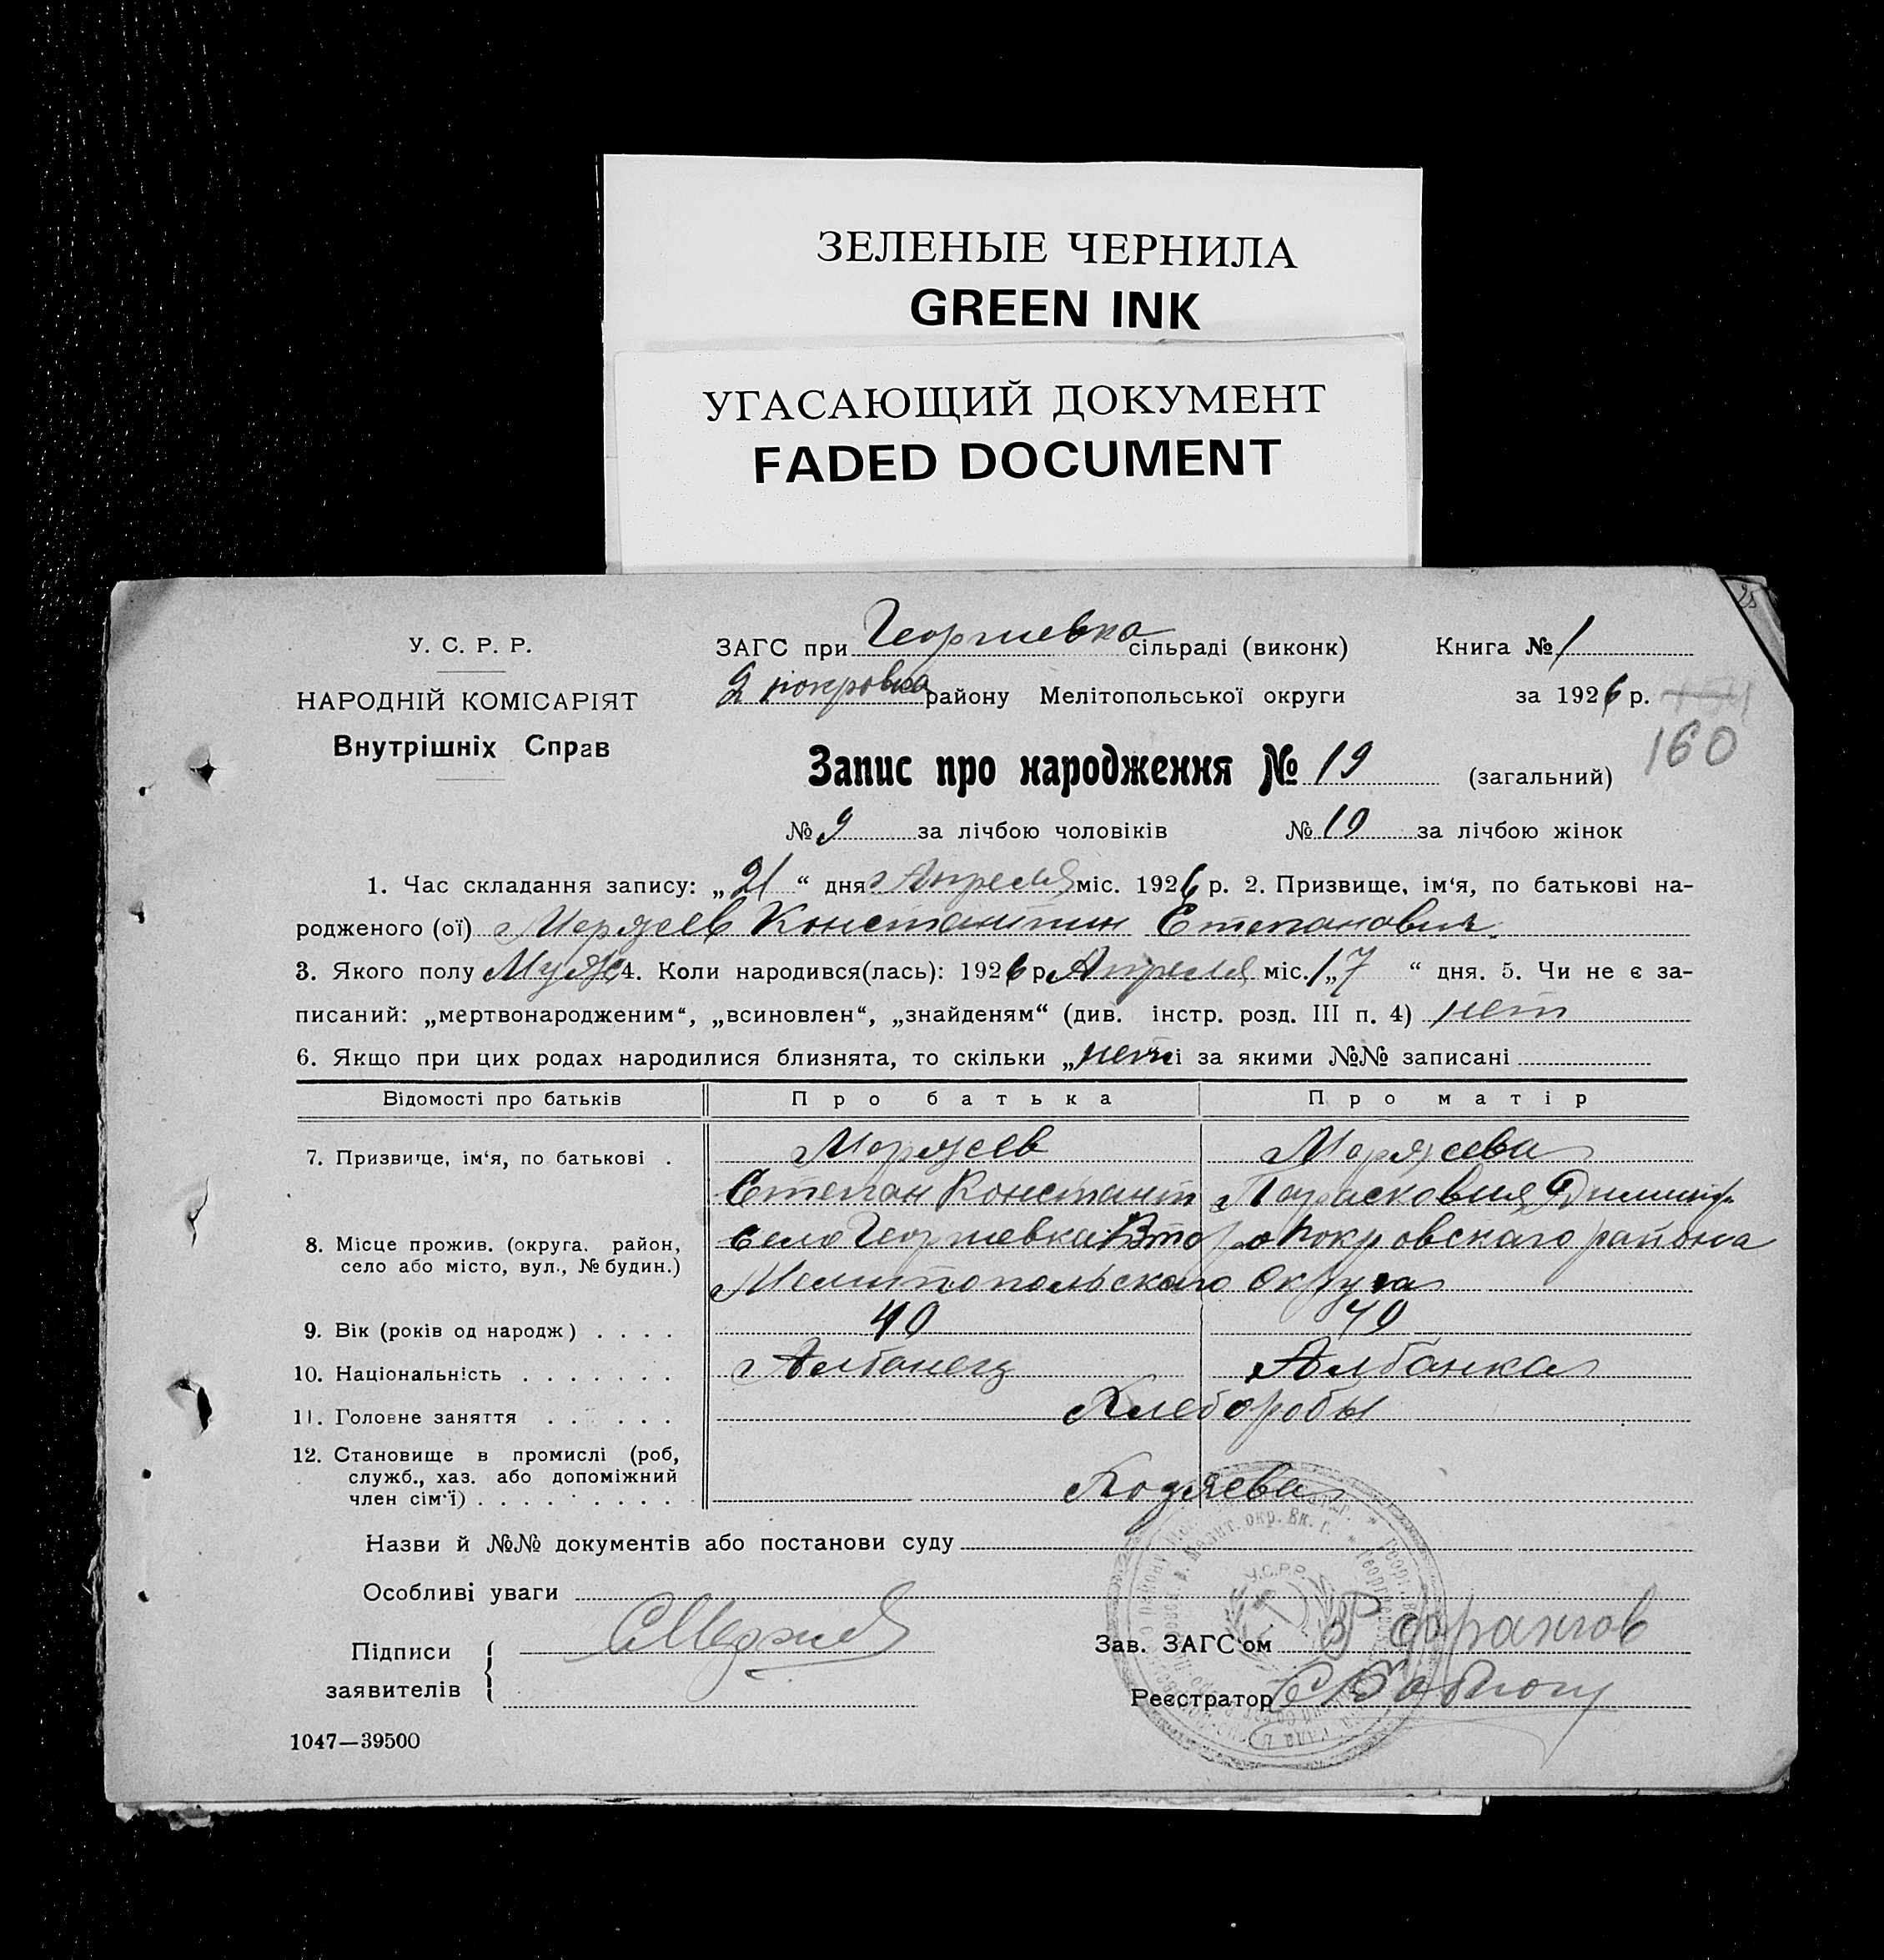 ЗЕЛЕНЫЕ ЧЕРНИЛА
GREEN INK
УГАСАЮЩИЙ ДОКУМЕНТ
FADED DOCUMENT
25
У. С. Р. Р.
НАРОДНІЙ КОМІСАРІЯТ
Внутрішніх Справ
ЗАГС при Георгиевка сільраді (виконк)
2 покровка району Мелітопольської округи
Книга № 1
за 1926 р.
160
Запис про народження № 19 (загальний)
№ 9 за лічбою чоловіків № 10 за лічбою жінок
1. Час складання запису: „21“ дня Апреля міс. 1926 р. 2. Призвище, ім‘я, по батькові на-
родженого (ої) Константин Степанович
3. Якого полу Муж 4. Коли народився(лась): 1926 р Апреля міс. „17“ дня. 5. Чи не є за-
писаний: „мертвонародженим“, „всиновлен“, „знайденям“ (див. інстр. розд. III п. 4) нет
6. Якщо при цих родах народилися близнята, то скільки „нет і за якими №№ записані
Відомості про батьків Про батька Про матір
7. Призвище, ім‘я, по батькові .
Степан Констант Парасковия Димитр
8. Місце прожив. (округа, район, село Георгиевка Второ Покровскаго района
село або місто, вул., № будин.) Мелитопольскаго Округа
9. Вік (років од народж) . . . . 40 40
10. Національність . . . . . . . Албанец Албанка
11. Головне заняття . . . . . Хлеборобы
12. Становище в промислі (роб,
служб., хаз. або допоміжний
член сім‘ї) . . . . . . . . . Хозяева
Назви й №№ документів або постанови суду
Особливі уваги
Підписи
заявителів
Зав. ЗАГС‘ом
Реєстратор
У.С.Р.Р.
1047—39500